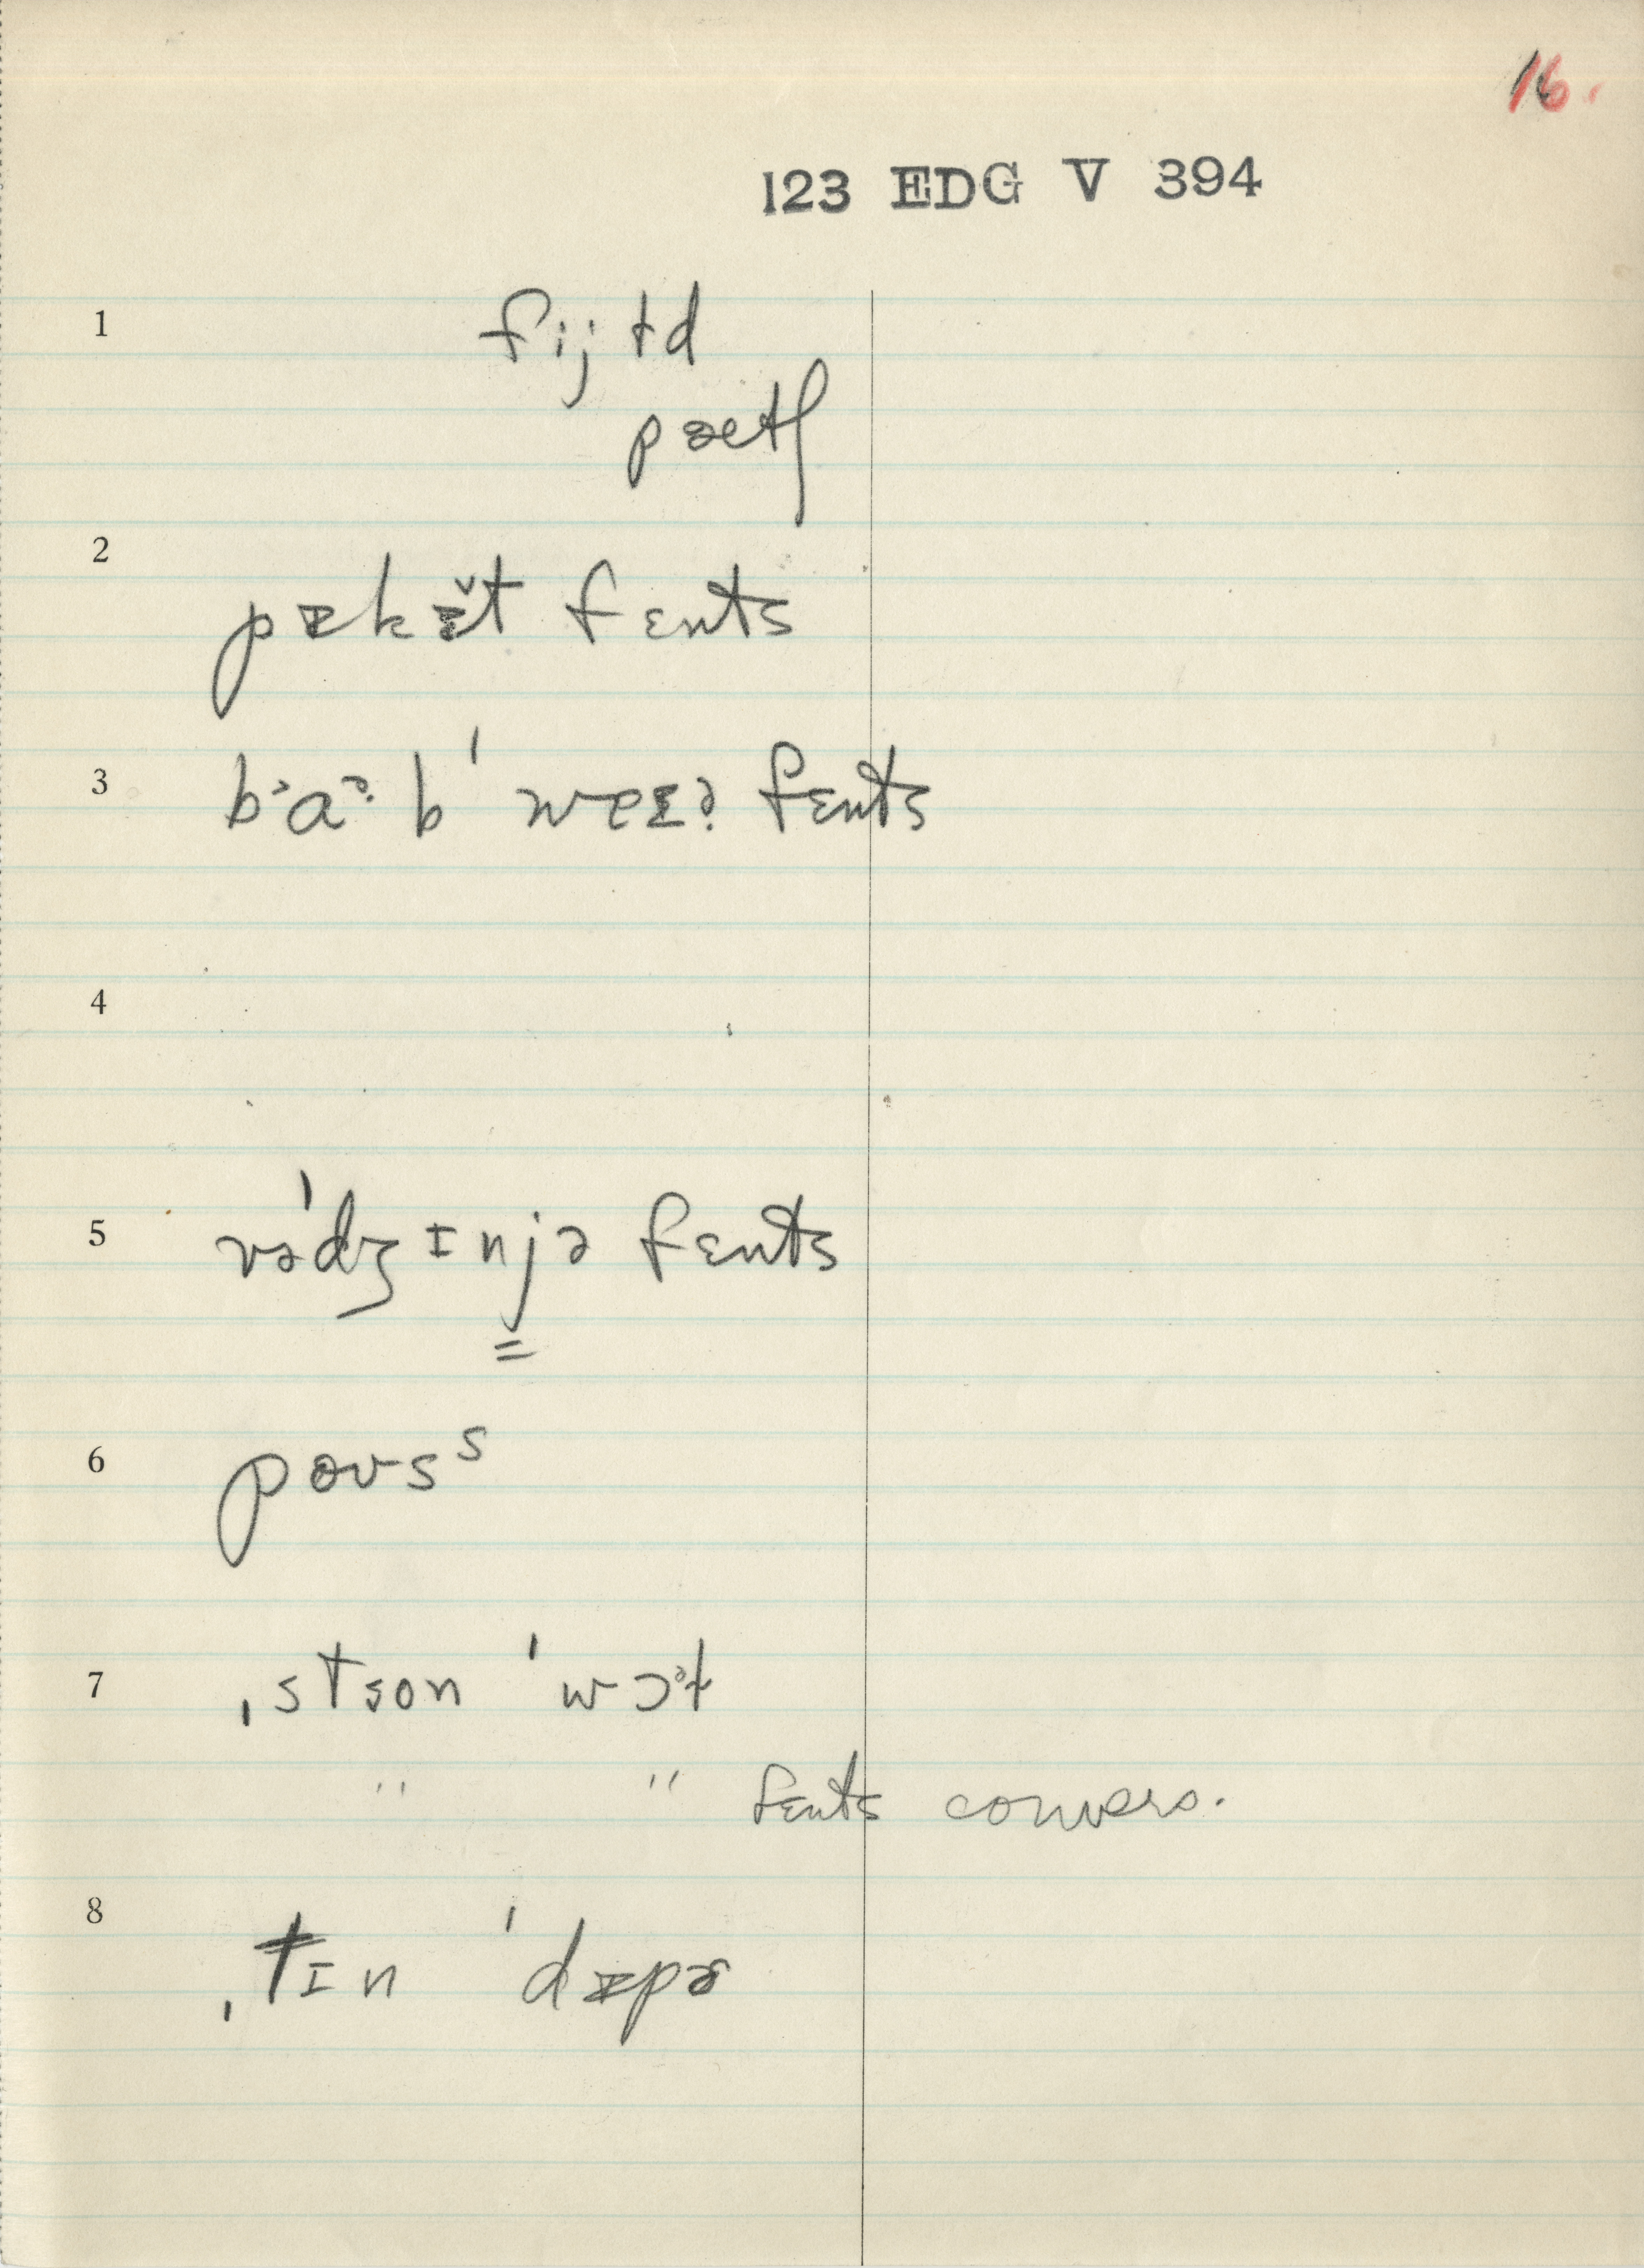 16.
123 EDG V 394
1 fijłd
pætʃ
2 pɪkɪ̆t fɛnts
3 bᵊaᵊ·b ˈweɛə fɛnts
4
5 vəˈdʒɪnjə fɛnts
6 poʊsˢ
7 ˌstson ˈwɔᵊł
" " fɛnts convers.
8 ˌtɪn ˈdɪpɚ